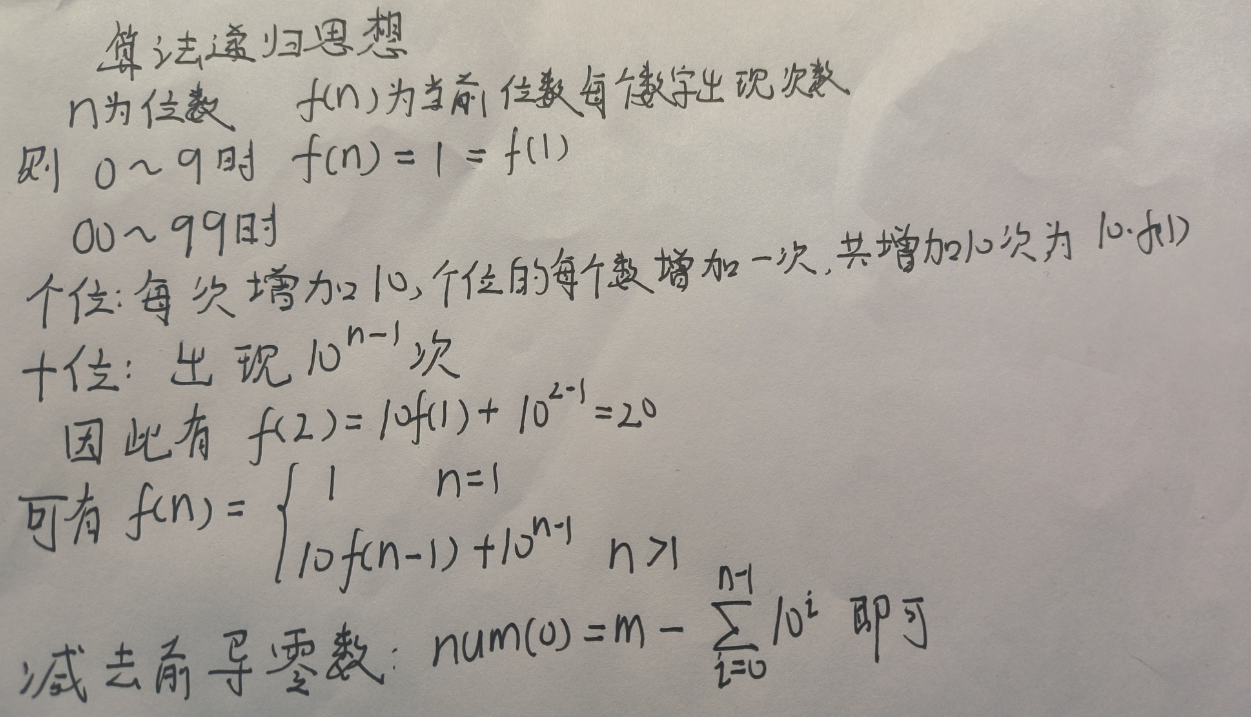 算法递归思想
n为位数 f(n)为当前位数每个数字出现次数
则 0~9时 f(n)=1=f(1)
00~99时
个位:每次增加10,个位的每个数增加一次,共增加10次为 10·f(1)
十位:出现10^{n-1}次
因此有 f(2)=10f(1)+10^{2-1}=20
可有 f(n)= { 1 n=1
10f(n-1)+10^{n-1} n>1
减去前导零数: num(0)=m-\sum_{i=0}^{n-1}10^i 即可